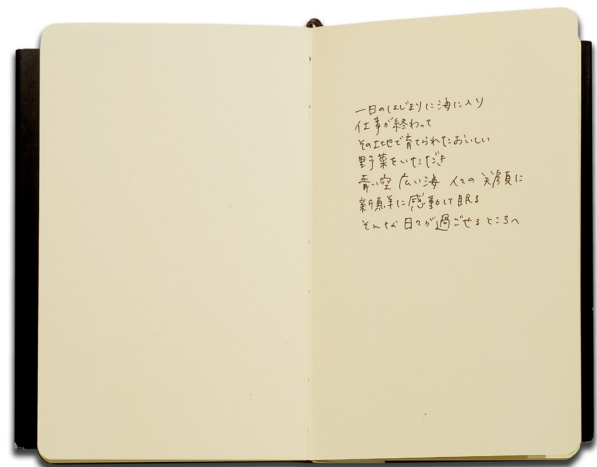 一日のはじまりに海に入り
仕事が終わって
その土地で育てられたおいしい
野菜をいただき
青い空 広い海 人々の 笑顔に
新鮮に感動して眠る
そんな日々が過ごせるところへ